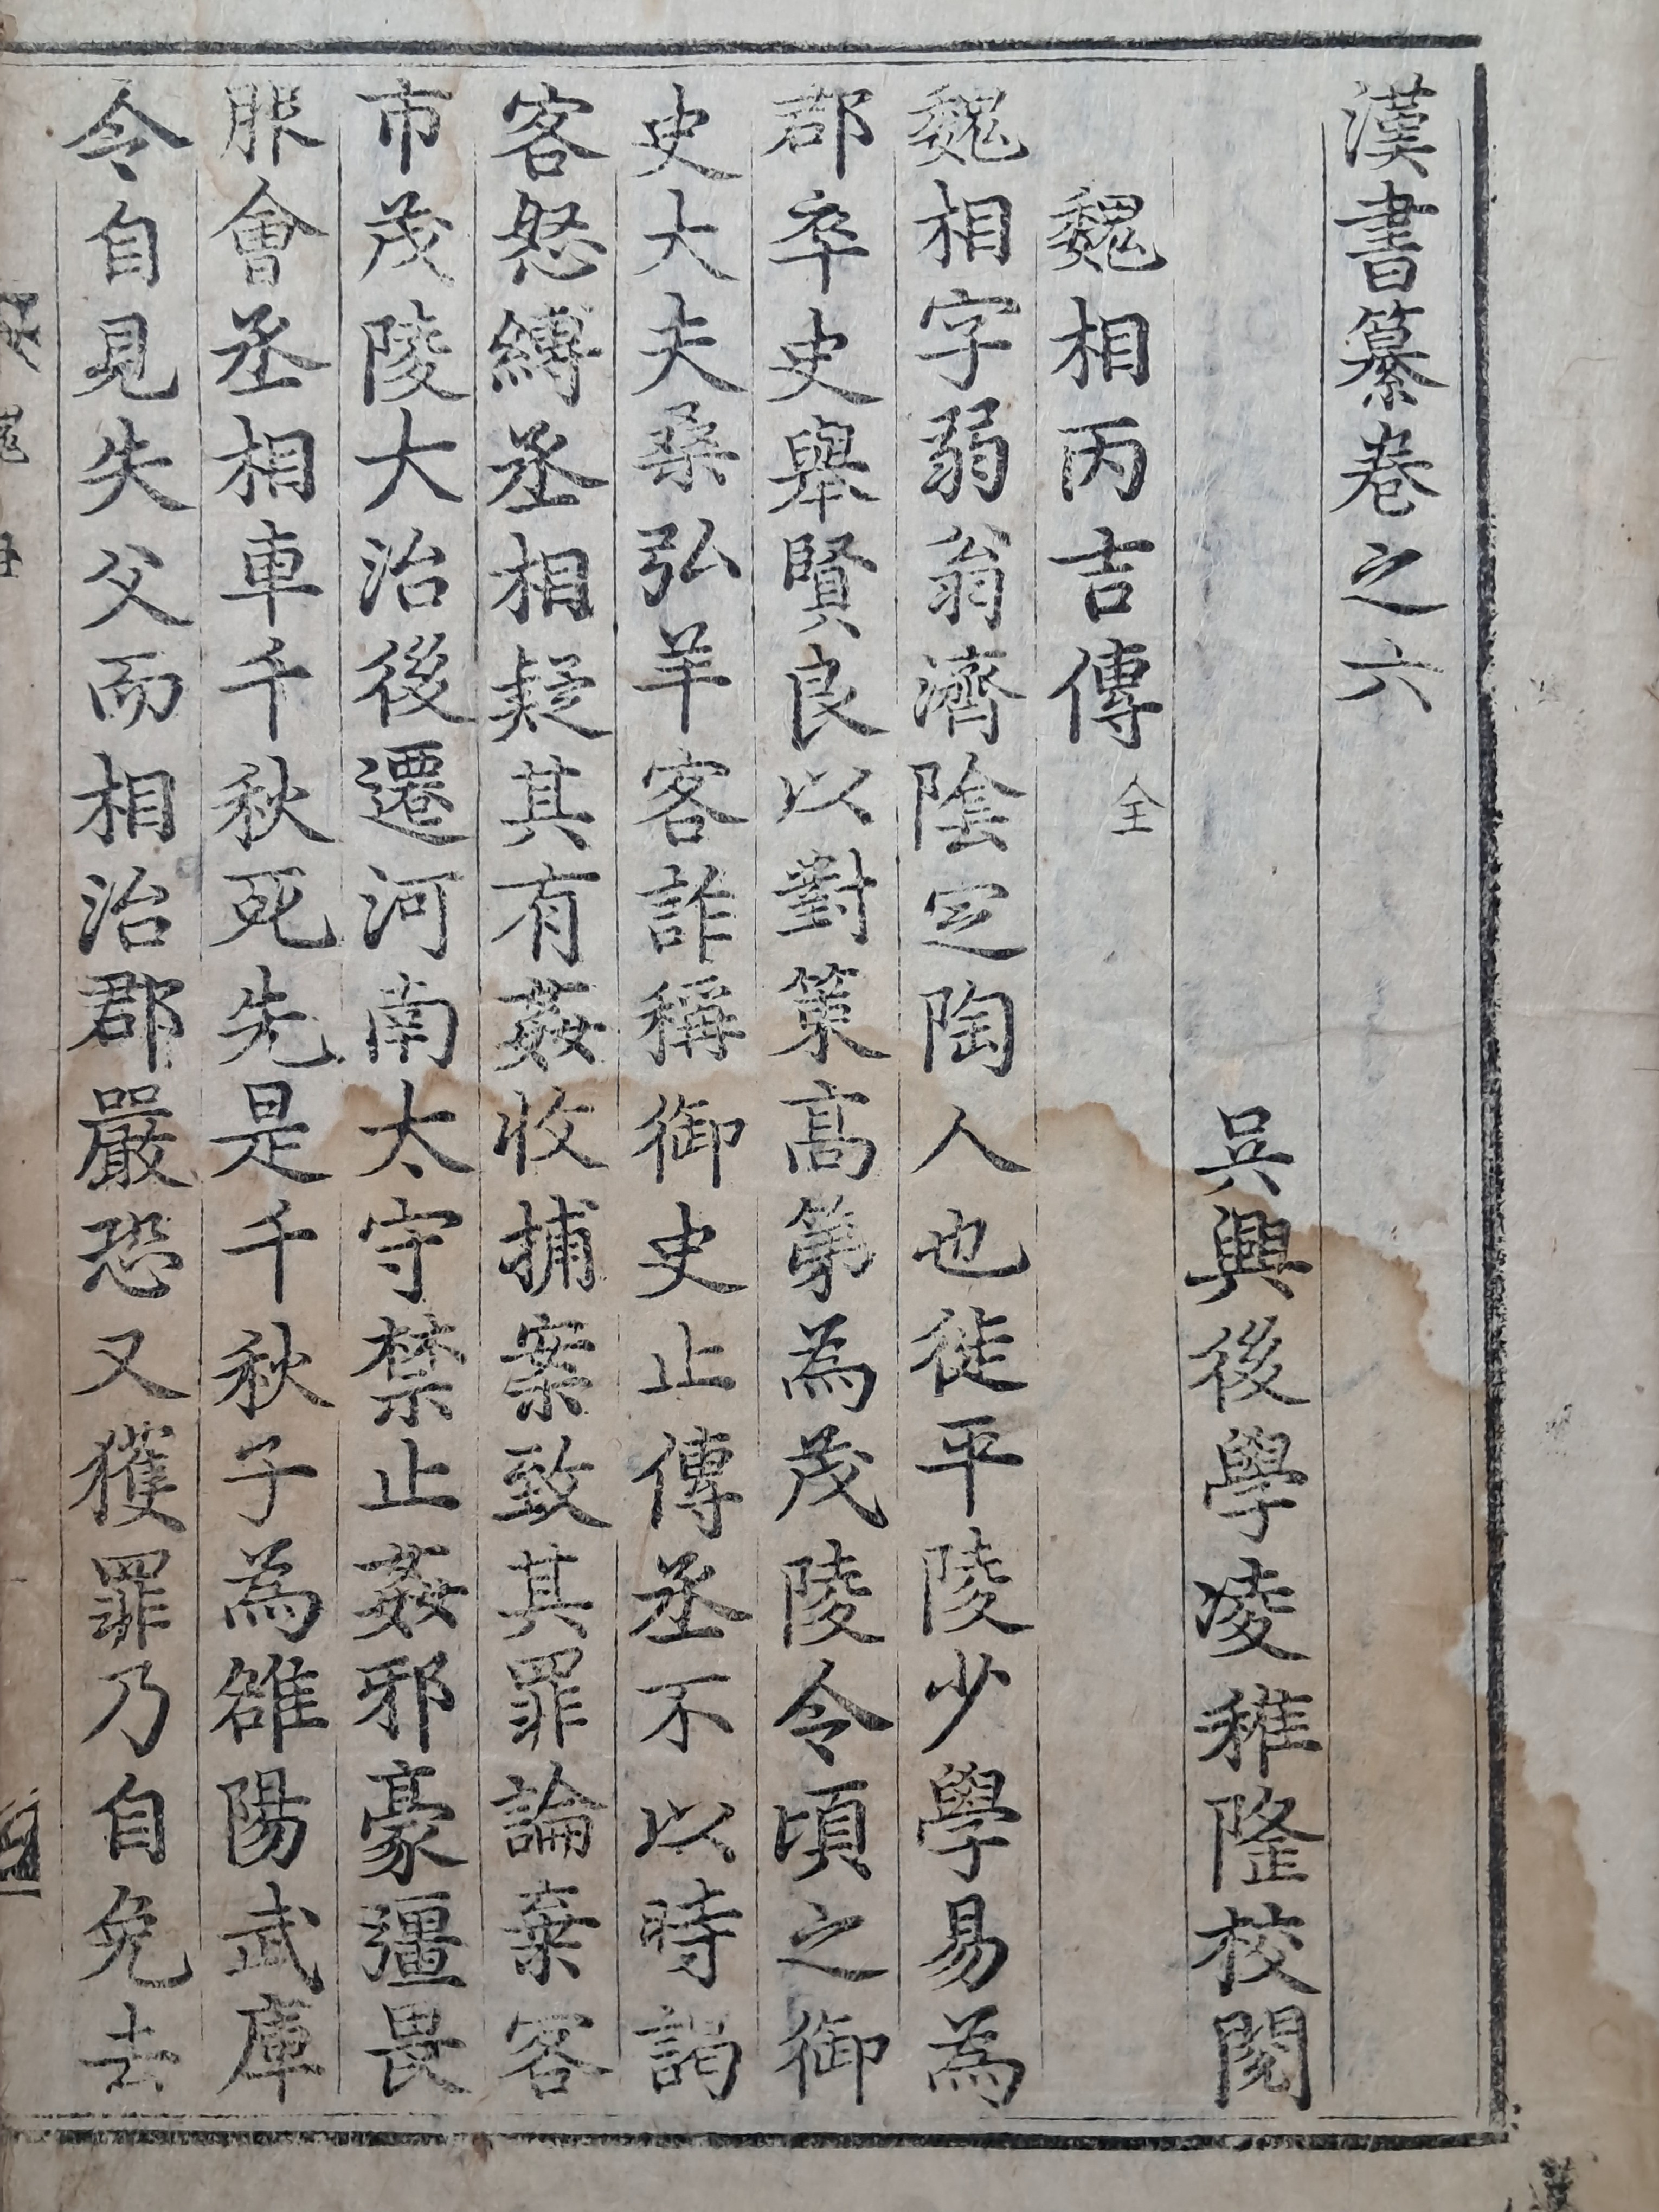 漢書纂卷之六
吳興後學凌稚隆校閱
魏相丙吉傳 全
魏相字弱翁濟陰定陶人也徙平陵少學易為
郡卒史舉賢良以對策高第為茂陵令頃之御
史大夫桑弘羊客詐稱御史止傳丞不以時謁
客怒縛丞相疑其有姦收捕案致其罪論棄客
市茂陵大治後遷河南太守禁止姦邪豪彊畏
服會丞相車千秋死先是千秋子為雒陽武庫
令自見失父而相治郡嚴恐又獲罪乃自免去